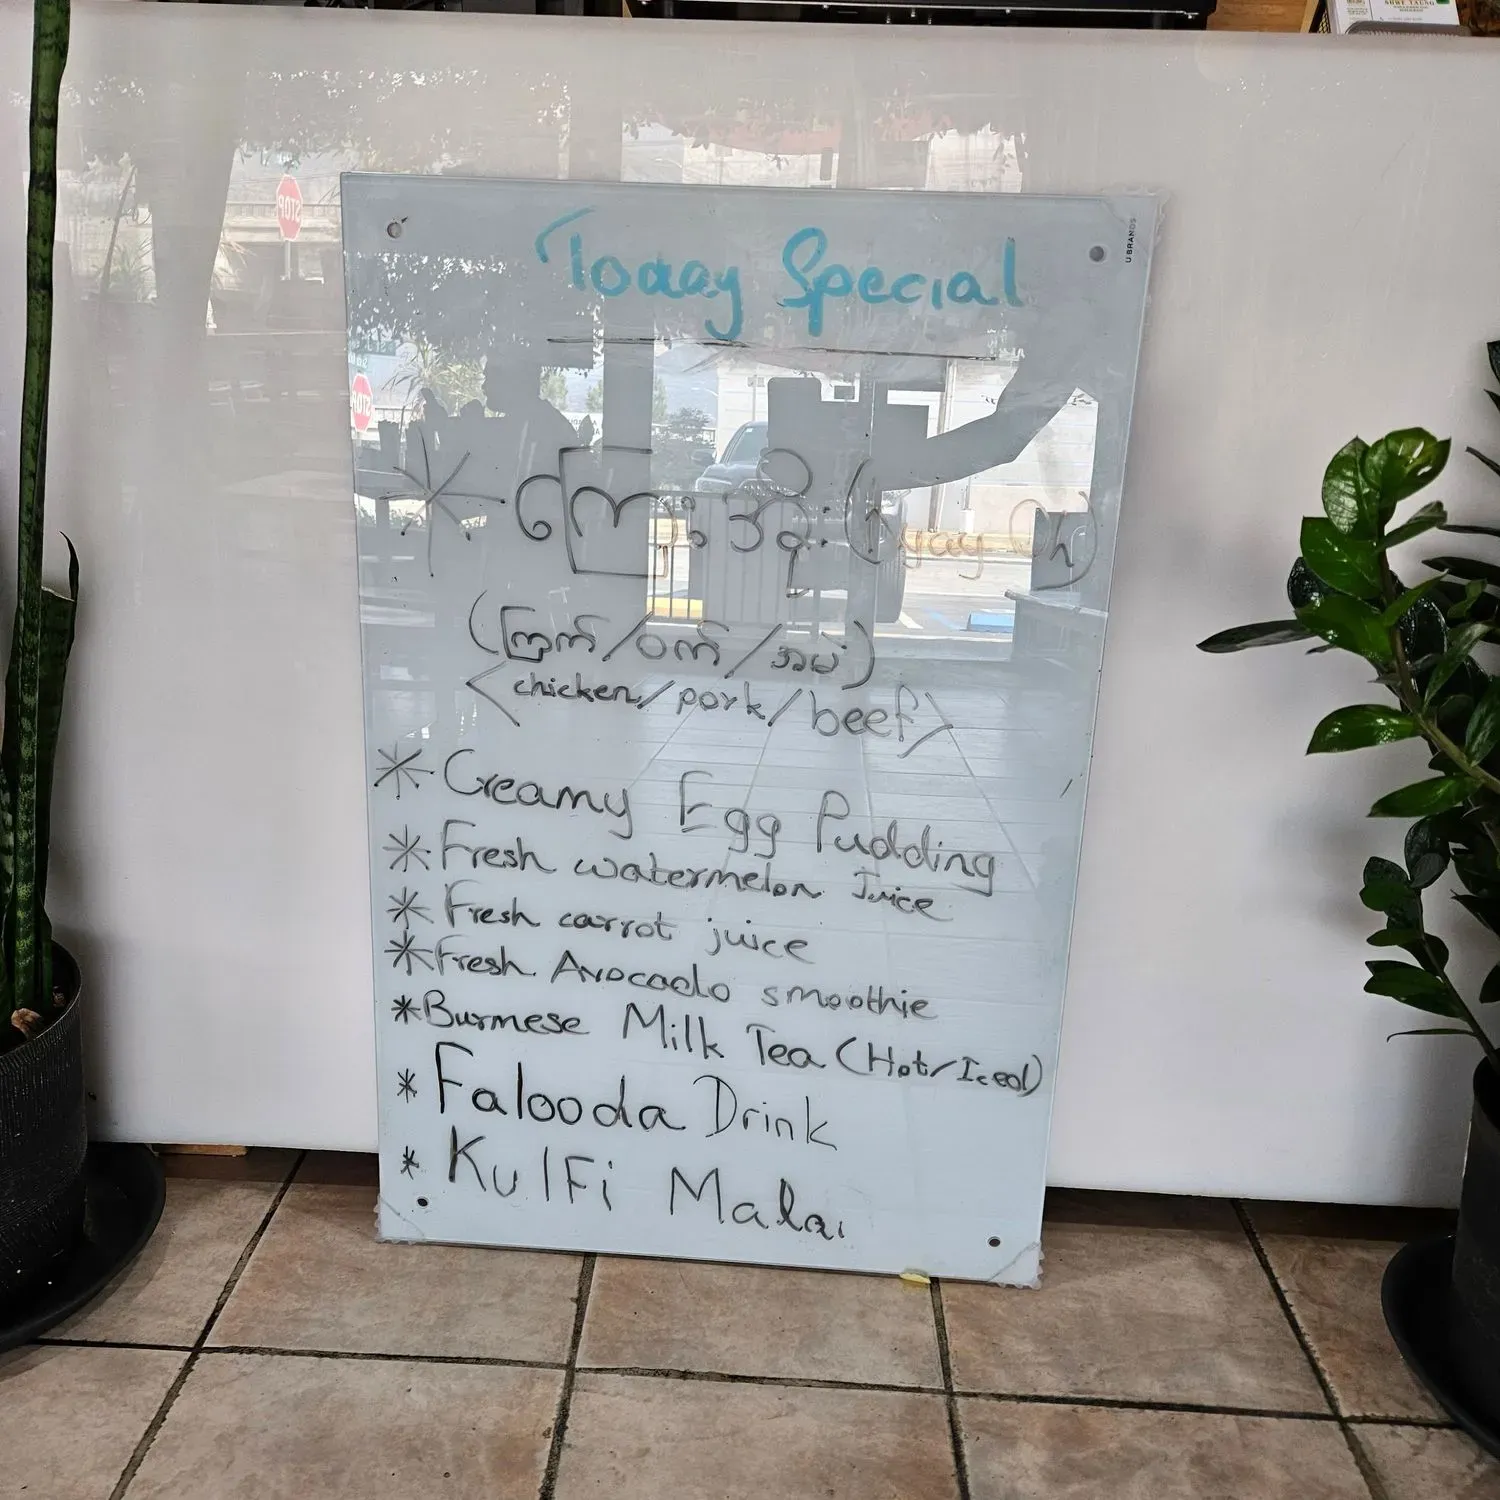 SHWE TAUNG
STOP
U BRANDS
Today Special
STOP
* ကြေးအိုး (Kyay Oh)
(ကြက်/ဝက်/အမဲ)
<chicken/pork/beef>
* Creamy Egg Pudding
* Fresh watermelon Juice
* Fresh carrot juice
* Fresh Avocado smoothie
* Burmese Milk Tea (Hot/Iced)
* Falooda Drink
* KulFi Malai